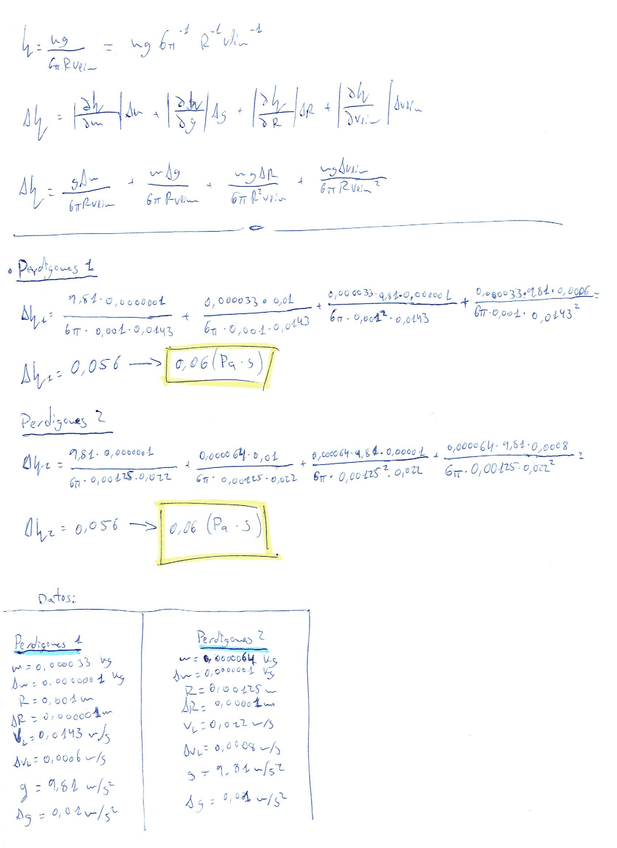 η = mg / 6πRvlim = mg 6π⁻¹ R⁻¹ vlim⁻¹
Δη = |∂η/∂m| Δm + |∂η/∂g| Δg + |∂η/∂R| ΔR + |∂η/∂vlim| Δvlim
Δη = gΔm / 6πRvlim + mΔg / 6πRvlim + mgΔR / 6πR²vlim + mgΔvlim / 6πRvlim²
• Perdigones 1
Δη₁ = 9,81·0,0000001 / 6π·0,001·0,0143 + 0,000033·0,01 / 6π·0,001·0,0143 + 0,000033·9,81·0,000001 / 6π·0,001²·0,0143 + 0,000033·9,81·0,0006 / 6π·0,001·0,0143² =
Δη₁ = 0,056 → 0,06 (Pa·s)
Perdigones 2
Δη₂ = 9,81·0,0000001 / 6π·0,00125·0,022 + 0,000064·0,01 / 6π·0,00125·0,022 + 0,000064·9,81·0,00001 / 6π·0,00125²·0,022 + 0,000064·9,81·0,0008 / 6π·0,00125·0,022² =
Δη₂ = 0,056 → 0,06 (Pa·s)
Datos:
Perdigones 1
m = 0,000033 kg
Δm = 0,0000001 kg
R = 0,001 m
ΔR = 0,000001 m
VL = 0,0143 m/s
ΔVL = 0,0006 m/s
g = 9,81 m/s²
Δg = 0,01 m/s²
Perdigones 2
m = 0,0000064 kg
Δm = 0,0000001 kg
R = 0,00125 m
ΔR = 0,00001 m
VL = 0,022 m/s
ΔVL = 0,0008 m/s
g = 9,81 m/s²
Δg = 0,01 m/s²